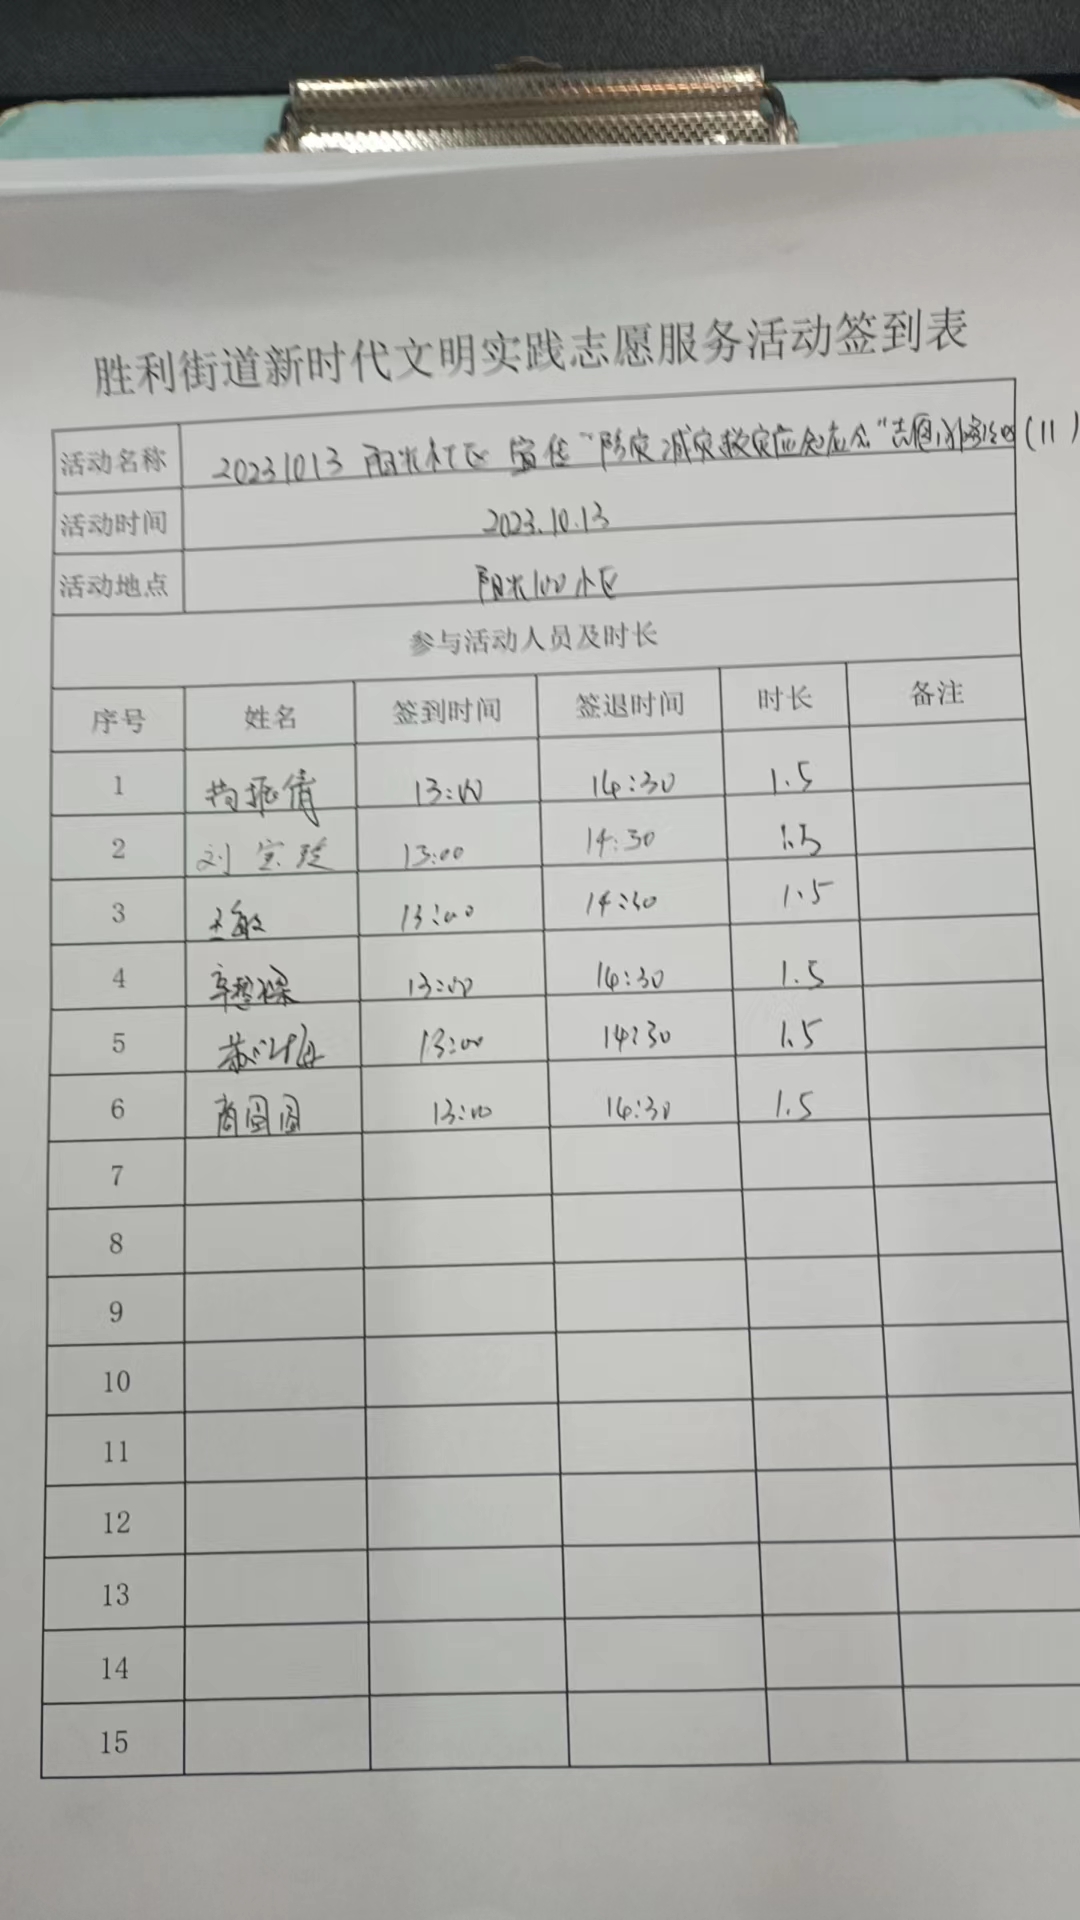 胜利街道新时代文明实践志愿服务活动签到表
活动名称 20231013 阳光社区 宣传"防灾减灾救灾应急应会"志愿 (11)
活动时间 2023.10.13
活动地点 阳光100小区
参与活动人员及时长
序号 姓名 签到时间 签退时间 时长 备注
1 13:00 14:30 1.5
2 刘宝玲 13:00 14:30 1.5
3 王敏 13:00 14:30 1.5
4 13:00 14:30 1.5
5 13:00 14:30 1.5
6 商圆圆 13:00 14:30 1.5
7
8
9
10
11
12
13
14
15